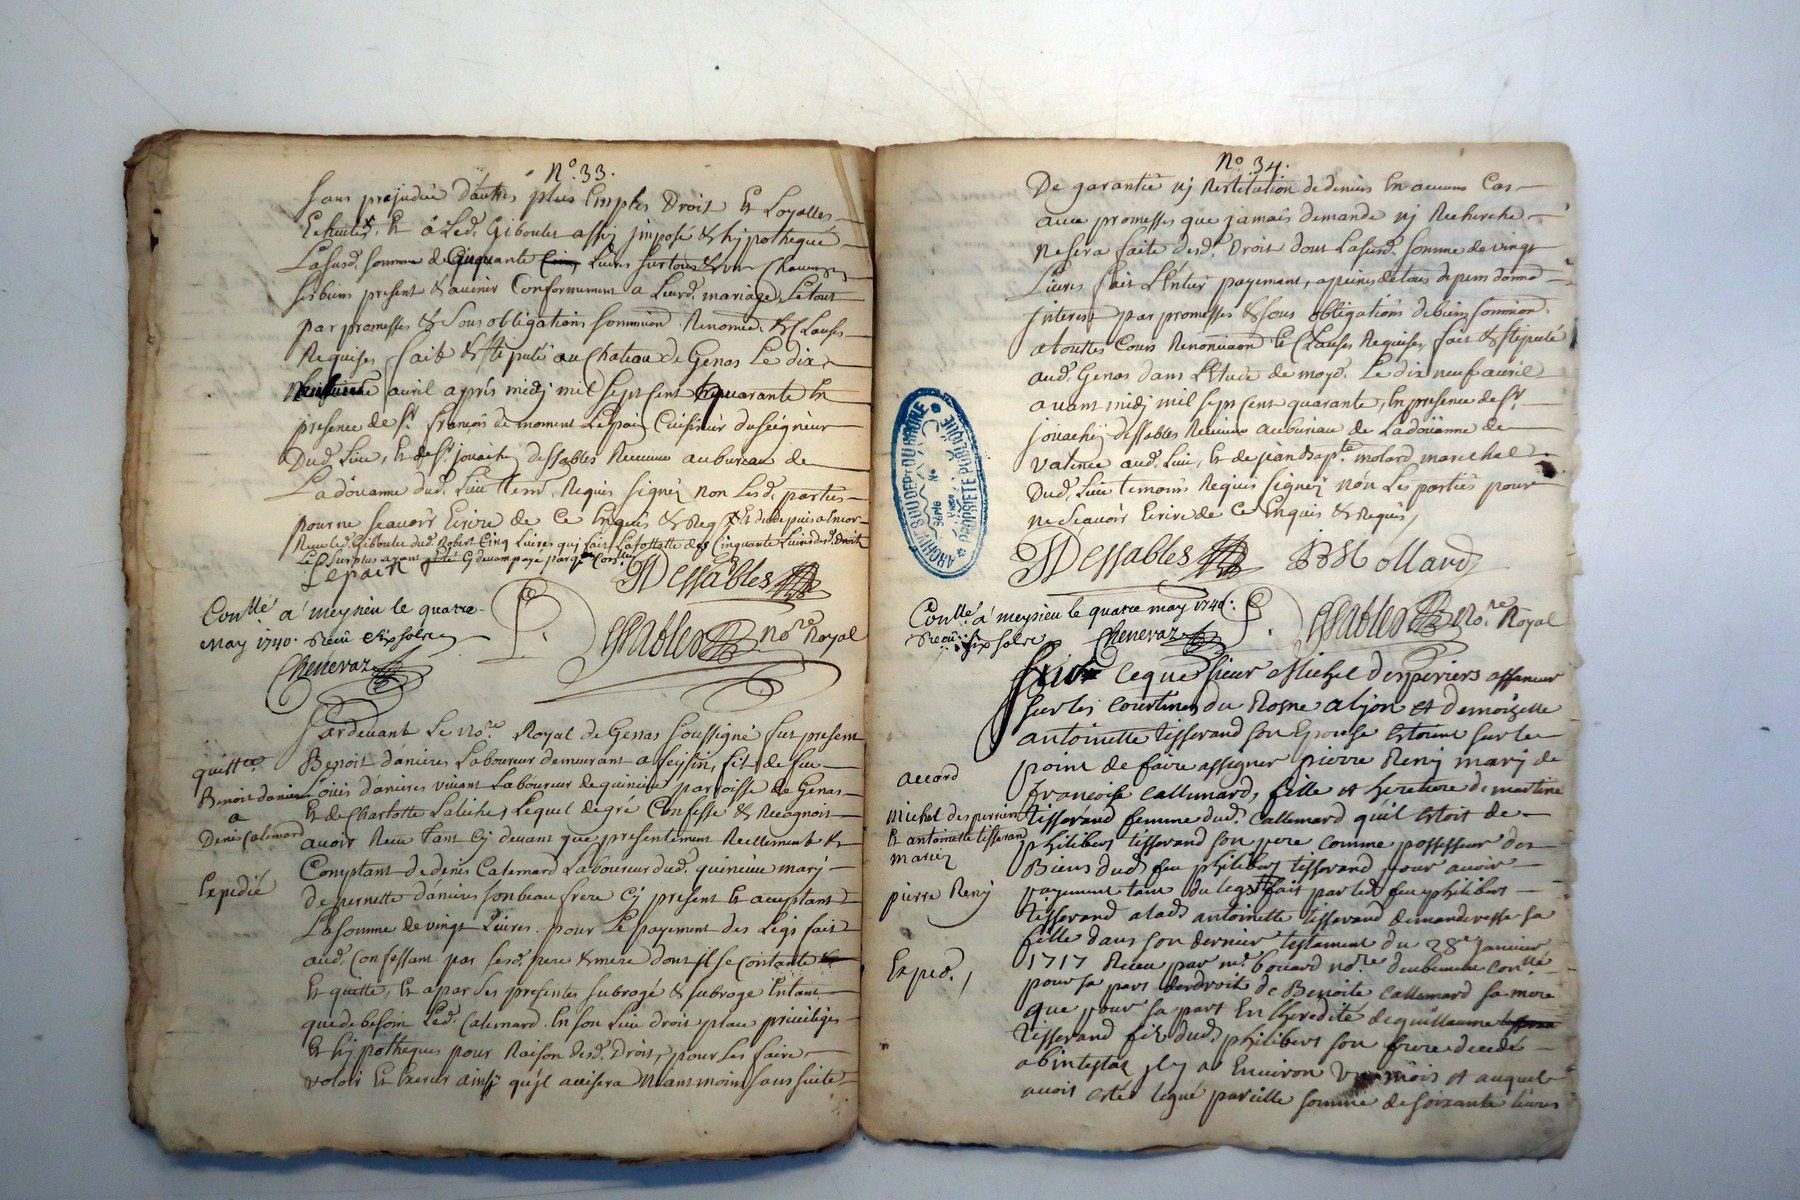 N.° 33.
sans prejudice d'autres plus amples Droit Et Loyalles
Et à Led. Giboulet assij jmposé & hijpothequé
Lasusd. somme de Cinquante Livres sur tous &
ses biens present & avenir Conformement a Leurd. mariage, Le tout
par promesses & sous obligations soumission Renonce. & Clauses
Requises, fait & stipulé au Chateau de Genas Le dix
avril aprés midj mil sept cent quarante En
presence de Sr. françois de moment Lepaix Cuisinier du seigneur
Dud. Lieu, Et de Sr. joüachij Dessables Receveur au bureau de
La doüanne dud. Lieu tem. Requis signéz non Lesd. parties
pour ne sçauoir Ecrire de Ce Enquis & Req. Et du depuis a Encor
Receu led. Giboulet dud. Robert Cinq Livres quj fait La tottalle des Cinquante Livres desd. Droit
Le surplus ayant été Cy devant payé
Lepaix
JDessables
Conllé. a meysieu le quatre
May 1740. Receü six sols
Chenevaz
Dessables No.re Royal
Pardevant Le No.re Royal de Genas soussigné fut present
quittce.
Benoit d'anieres
a
Denis Calemard
Expedié
Benoit d'anieres Laboureur demeurant a feijsin, fils de feu
Loüis d'anieres vivant Laboureur de quincieu parroisse de Genas
Et de Charlotte Laliche, Lequel de gré Confesse & Recognoit
avoir Receu tant Cij devant que presentement Reellement &
Comptant de denis Calemard Laboureur dud. quincieu marij
de pernette d'anieres son beau frere Cij present Et acceptant
La somme de vingt Livres pour Le payement des Legs fait
aud. Confessant par sesd. pere & mere dont jl se Contante
Et quitte, Et a par Ses presentes subrogé & subroge Entant
que de besoin Led. Calemard En son Lieu droit place privileges
Et hijpotheques pour Raison desd. Droit, pour Les faire
valoir Et Exercer ainsij qu'jl avisera Néantmoins sans suite
N.° 34.
De garantie nj Restitution de deniers En aucuns Cas
avec promesses que jamais demande nj Recherche
Ne sera faite desd. Droit dont Lasusd. somme de vingt
Livres fait L'Entier payement, a peines de tous depens domâ
jnterest par promesses & sous obligations de biens soumission
a touttes Cours Renonciaon Et Clauses Requises, fait & stipulé
aud. Genas dans L'Etude de moyd. Le dix neuf avril
avant midj mil sept cent quarante, En presence de Sr.
joüachij Dessables Receveur au bureau de La doüanne de
valence aud. Lieu, Et de jean Bap.te molard marechal
Dud. Lieu temoins Requis signéz non Les parties pour
ne sçauoir Ecrire de Ce Enquis & Requis,
JDessables JBMollard
Conlle. a meysieu le quatre may 1740.
Receü six sols Chenevaz
Dessables No.re Royal
ARCHIVES DU DEPT DU RHONE
Série
No
PROPRIETE PUBLIQUE
Sur ce que sieur Michel desperiers affaneur
sur les courtines du Rosne a lyon et demoiselle
antoinette tisserand son Epouse Estoient sur le
accord
michel desperriers
Et antoinette tisserand
mariez
pierre Renij
Exped.
point de faire assigner pierre Renij marij de
françoise callemard, fille et heritiere de martine
tisserand femme dud. Callemard qu'il Estoit de
philibert tisserand son pere comme possesseur des
Biens dud. feu philibert tisserand pour avoir
payement tant du legs fait par led. feu philibert
tisserand a lad. antoinette tisserand demanderesse sa
fille dans son dernier testament du 28e. janvier
1717 Receu par me. bovard no.re conllé.
pour sa part de Benoite callemard sa mere
que pour sa part En lheredité de guillaume
tisserand fils dud. philibert son frere decedé
abintestat jl y a Environ mois et auquel
avoit esté legué pareille somme de soixante livres